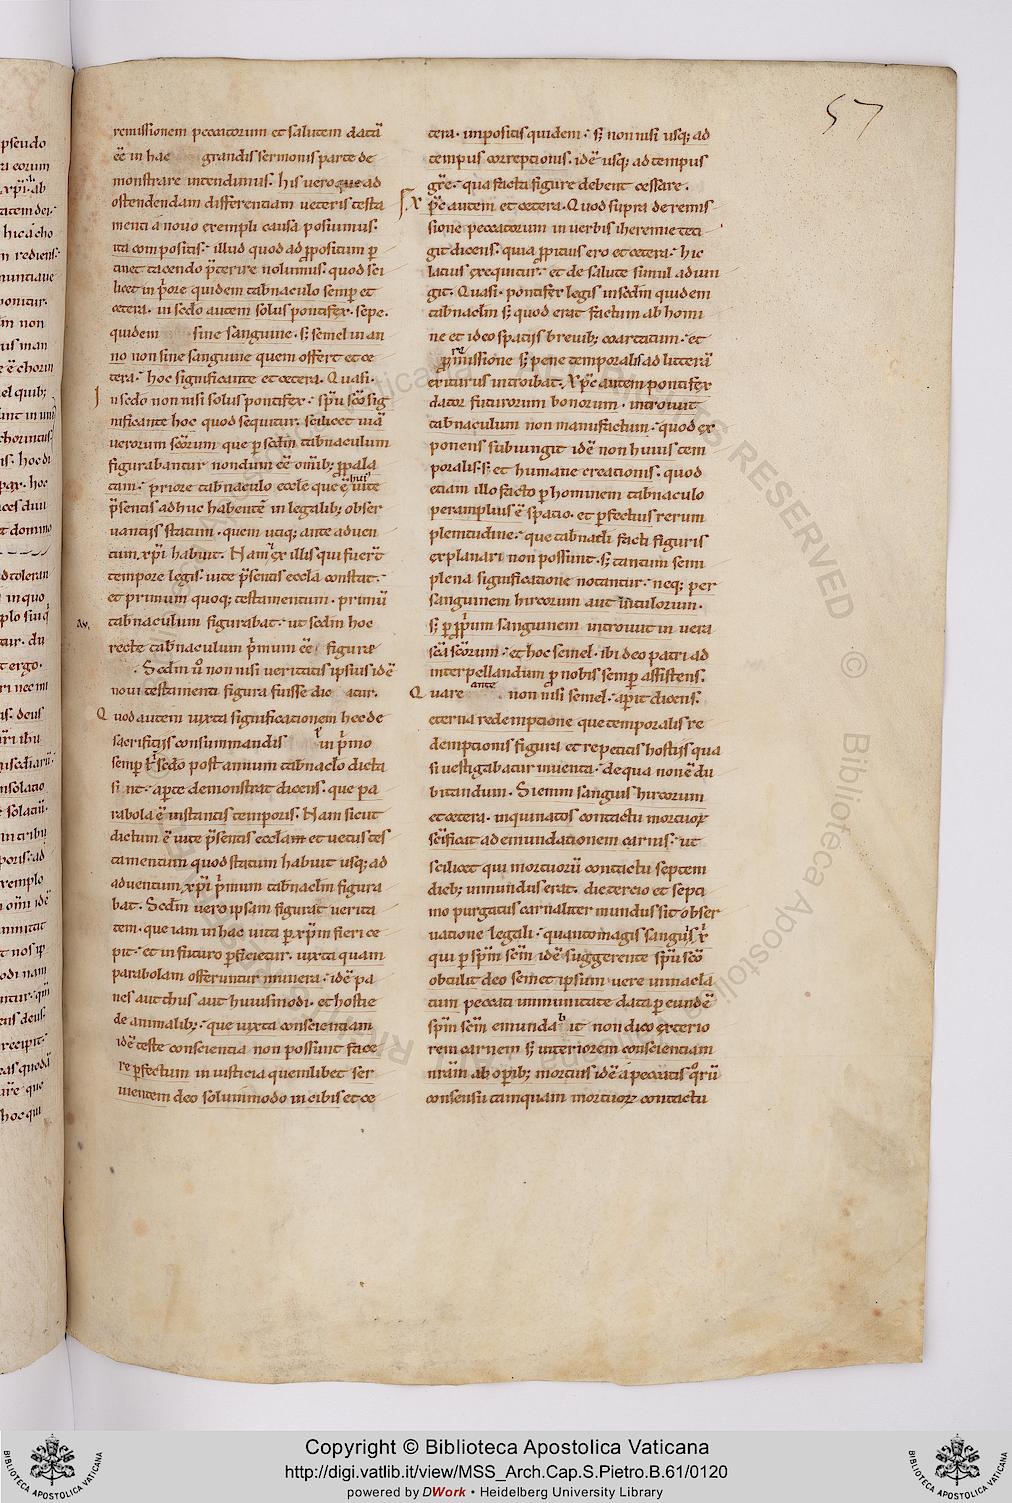 57
remissionem peccatorum et salutem datā
eē in hac grandis sermonis parte de
monstrare intendimus. his vero que ad
ostendendam differentiam ueteris testa
menti a nouo exempli causa posuimus.
ita compositis. illud quod ad ppositum p
tinet tacendo p̄terire nolumus. quod sci
licet in p̄ore quidem tab̄naculo semp et
cetera. in sc̄do autem solus pontifex. sepe.
quidem sine sanguine. s; semel in an
no non sine sanguine quem offert et ce
tera. hoc significante et cetera. Quasi.
In sc̄do non nisi solus pontifex. sp̄u sc̄o sig
nificante hoc quod sequitur. scilicet uiā
uerorum sc̄orum que p sc̄dm tab̄naculum
figurabantur nondum eē om̄ib; ppala
tam. priore tab̄naculo eccl̄e que ē hui' uite
p̄sentis adhuc habente in legalib; obser
uantijs statum. quem utiq; ante aduen
tum xp̄i habuit. Nam ex illis qui fuer̄t
tempore legis. uite p̄sentis eccl̄a constat.
et primum quoq; testamentum. primū
tab̄naculum figurabat. ut sc̄dm hoc
recte tab̄naculum p̄mum eē figura
Sc̄dm u̅ non nisi ueritatis ipsius idē
noui testamenti figura fuisse dic atur.
Quod autem iuxta significationem hec de
sacrificijs consummandis in p̄mo
semp et sc̄do post annum tab̄nac̄lo dicta
si nt. aperte demonstrat dicens. que pa
rabola ē instantis temporis. Nam sicut
dictum ē uite p̄sentis ecclam et uetus tes
tamentum quod statum habuit usq; ad
aduentum xp̄i p̄mum tab̄nac̄lm figura
bat. Sc̄dm uero ipsam figurat uerita
tem. que iam in hac uita p xp̄m fieri ce
pit. et in futuro pficietur. iuxta quam
parabolam offeruntur munera. idē pa
nes aut thus aut huiusmodi. et hostie
de animalib;. que iuxta conscientiam
idē teste conscientia non possunt face
re pfectum in iusticia quemlibet ser
uientem deo solummodo in cibis et ce
tera. impositis quidem. s; non nisi usq; ad
tempus correptionis. idē usq; ad tempus
gr̄e. qua facta figure debent cessare.
Xp̄c autem et cetera. Quod supra de remis
sione peccatorum in uerbis iheremie teti
git dicens. quia ppitius ero et cetera. hic
latius exequitur. et de salute simul adiun
git. Quasi. pontifex legis in sc̄dm quidem
tab̄nac̄lm s; quod erat factum ab homi
ne et ideo spatijs breuib; coartatum. et
p remissione s; pene temporalis ad litterā
exiturus introibat. Xp̄c autem pontifex
dator futurorum bonorum. introiuit
tab̄naculum non manufactum. quod ex
ponens subiungit idē non huius tem
poralis. s; et humane creationis. quod
etiam illo facto p hominem tab̄naculo
peramplius ē spatio. et pfectius rerum
plenitudine. que tab̄nacl̄i facti figuris
explanari non possunt. s; tantum semi
plena significatione notantur. neq; per
sanguinem hircorum aut uitulorum.
s; p pp̄um sanguinem introiuit in uera
sc̄a sc̄orum. et hoc semel. ibi deo patri ad
interpellandum p nobis semp assistens.
Quare ante non nisi semel. ap̄it dicens.
eterna redemptione que temporalis re
demptionis figura et repetitis hostijs qua
si uestigabatur inuenta. de qua non ē du
bitandum. Si enim sanguis hircorum
et cetera. inquinatos contactu mortuoꝝ
sc̄ificat ad emundationem carnis. ut
scilicet qui mortuorū contactu septem
dieb; inmundus erat. die tercio et septi
mo purgatus carnaliter mundus sit obser
uatione legali. quanto magis sanguis x̄
qui p sp̄m sc̄m idē suggerente sp̄u sc̄o
obtulit deo semet ipsum uere inmacla
tum peccati inmunitate data p eundē
sp̄m sc̄m emundabit non dico exterio
rem carnem s; interiorem conscientiam
nr̄am ab opib; mortuis idē a peccatis q̊rū
consensu tamquam mortuoꝝ contactu
Copyright © Biblioteca Apostolica Vaticana
http://digi.vatlib.it/view/MSS_Arch.Cap.S.Pietro.B.61/0120
powered by DWork • Heidelberg University Library